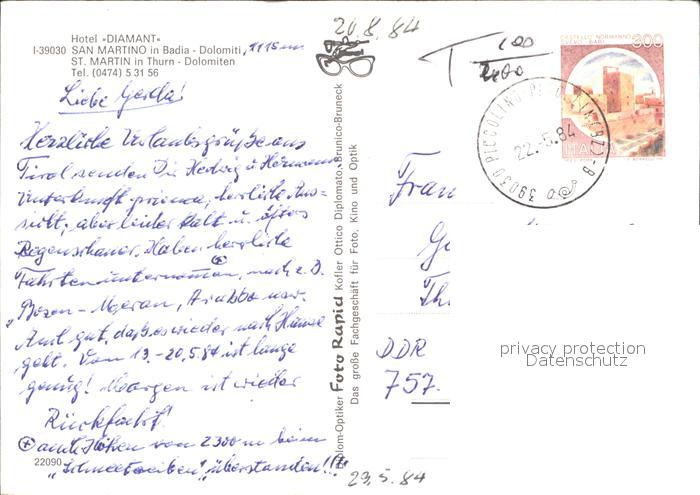 Hotel »DIAMANT«
I-39030 SAN MARTINO in Badia - Dolomiti, 1115 m
ST. MARTIN in Thurn - Dolomiten
Tel. (0474) 5 31 56
20.8.84
T 100
2400
CASTELLO NORMANNO
SVEVO BARI
300
ITALIA
39030 PICCOLINO
22.-5.84
Liebe Gerda!
Herzliche Urlaubsgrüße aus
Tirol senden Dir Hedwig u. Hermann
Unterkunft prima, herrliche Aus-
sicht, aber leider kalt u. öfters
Regenschauer. Haben herrliche
Fahrten unternommen, ⊕ nach z.B.
Bozen - Meran, Arabba usw.
gut, daß es wieder nach Hause
geht. Vom 13.-20.5.84 ist lange
genug! Morgen ist wieder
Rückfahrt!
⊕ auch Höhen von 2300 m beim
"Schneetreiben", überstanden!!!
22090
Diplom-Optiker Foto Rapid Kofler Ottico Diplomato - Brunico-Bruneck
Das große Fachgeschäft für Foto, Kino und Optik
Frau
DDR
757
29.5.84
privacy protection
Datenschutz